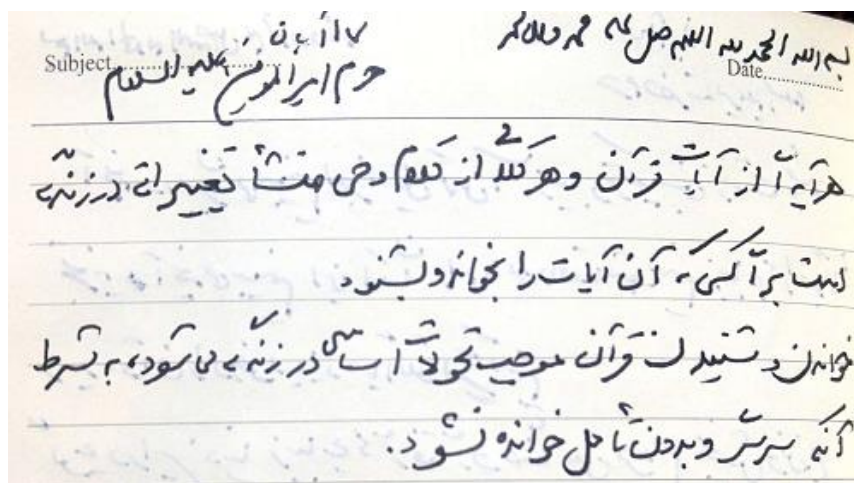 بسم الله الحمد لله اللهم صل علی محمد و آل محمد
Date
۱۷ آبان
Subject
حرم امیرالمومنین علیه السلام
هر آیه‌ای از آیات قرآن و هر کلامی از کلام وحی منشأ تغییراتی در زندگی
است برای کسی که آن آیات را بخواند و بشنود.
خواندن و شنیدن قرآن موجب تحولات اساسی در زندگی می‌شود، به شرط
آنکه سرسری و بدون تأمل خوانده نشود.